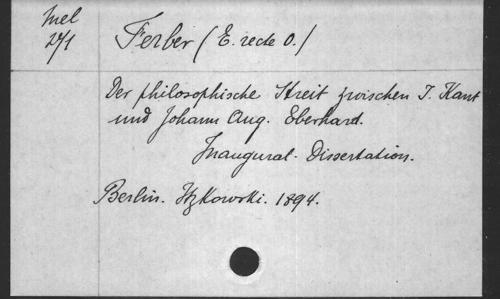 Mel
24/1
Ferber (E. recte O.)
Der philosophische Streit zwischen I. Kant
und Johann Aug. Eberhard.
Inaugural-Dissertation.
Berlin. Itzkowski. 1894.